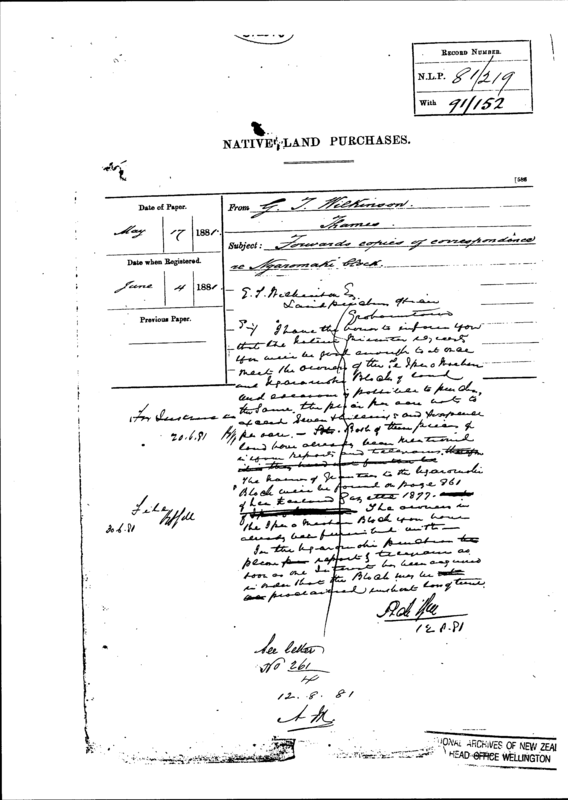 RECORD NUMBER.
N.L.P. 81/219
With 91/152
NATIVE LAND PURCHASES.
[586
Date of Paper.
May 17 1881.
Date when Registered.
June 4 1881
Previous Paper.
From G. T. Wilkinson.
Thames
Subject: Forwards copies of correspondence
re Ngaromaki block.
G. T. Wilkinson Esq
Land Purchase Officer
I have the honor to inform you
that the Native Minister
you will be good enough to at once
meet the owners of the
and Block of land
and if possible to purchase
the same, the price per acre not to
exceed Seven shillings and sixpence
per acre. – Both of these pieces of
land have already been mentioned
in your reports and telegrams
The names of Grantees to the
Block will be found on page 861
of New Zealand Gazette 1877.
The owners in
the Block you have
already been furnished with –
In the purchase
please report by telegram as
soon as one Interest has been acquired
in order that the Block may be
proclaimed without loss of time
12.8.81
20.6.81
File
20.6.81
See letter
No 261/4
12.8.81
ONAL ARCHIVES OF NEW ZEAL
HEAD OFFICE WELLINGTON